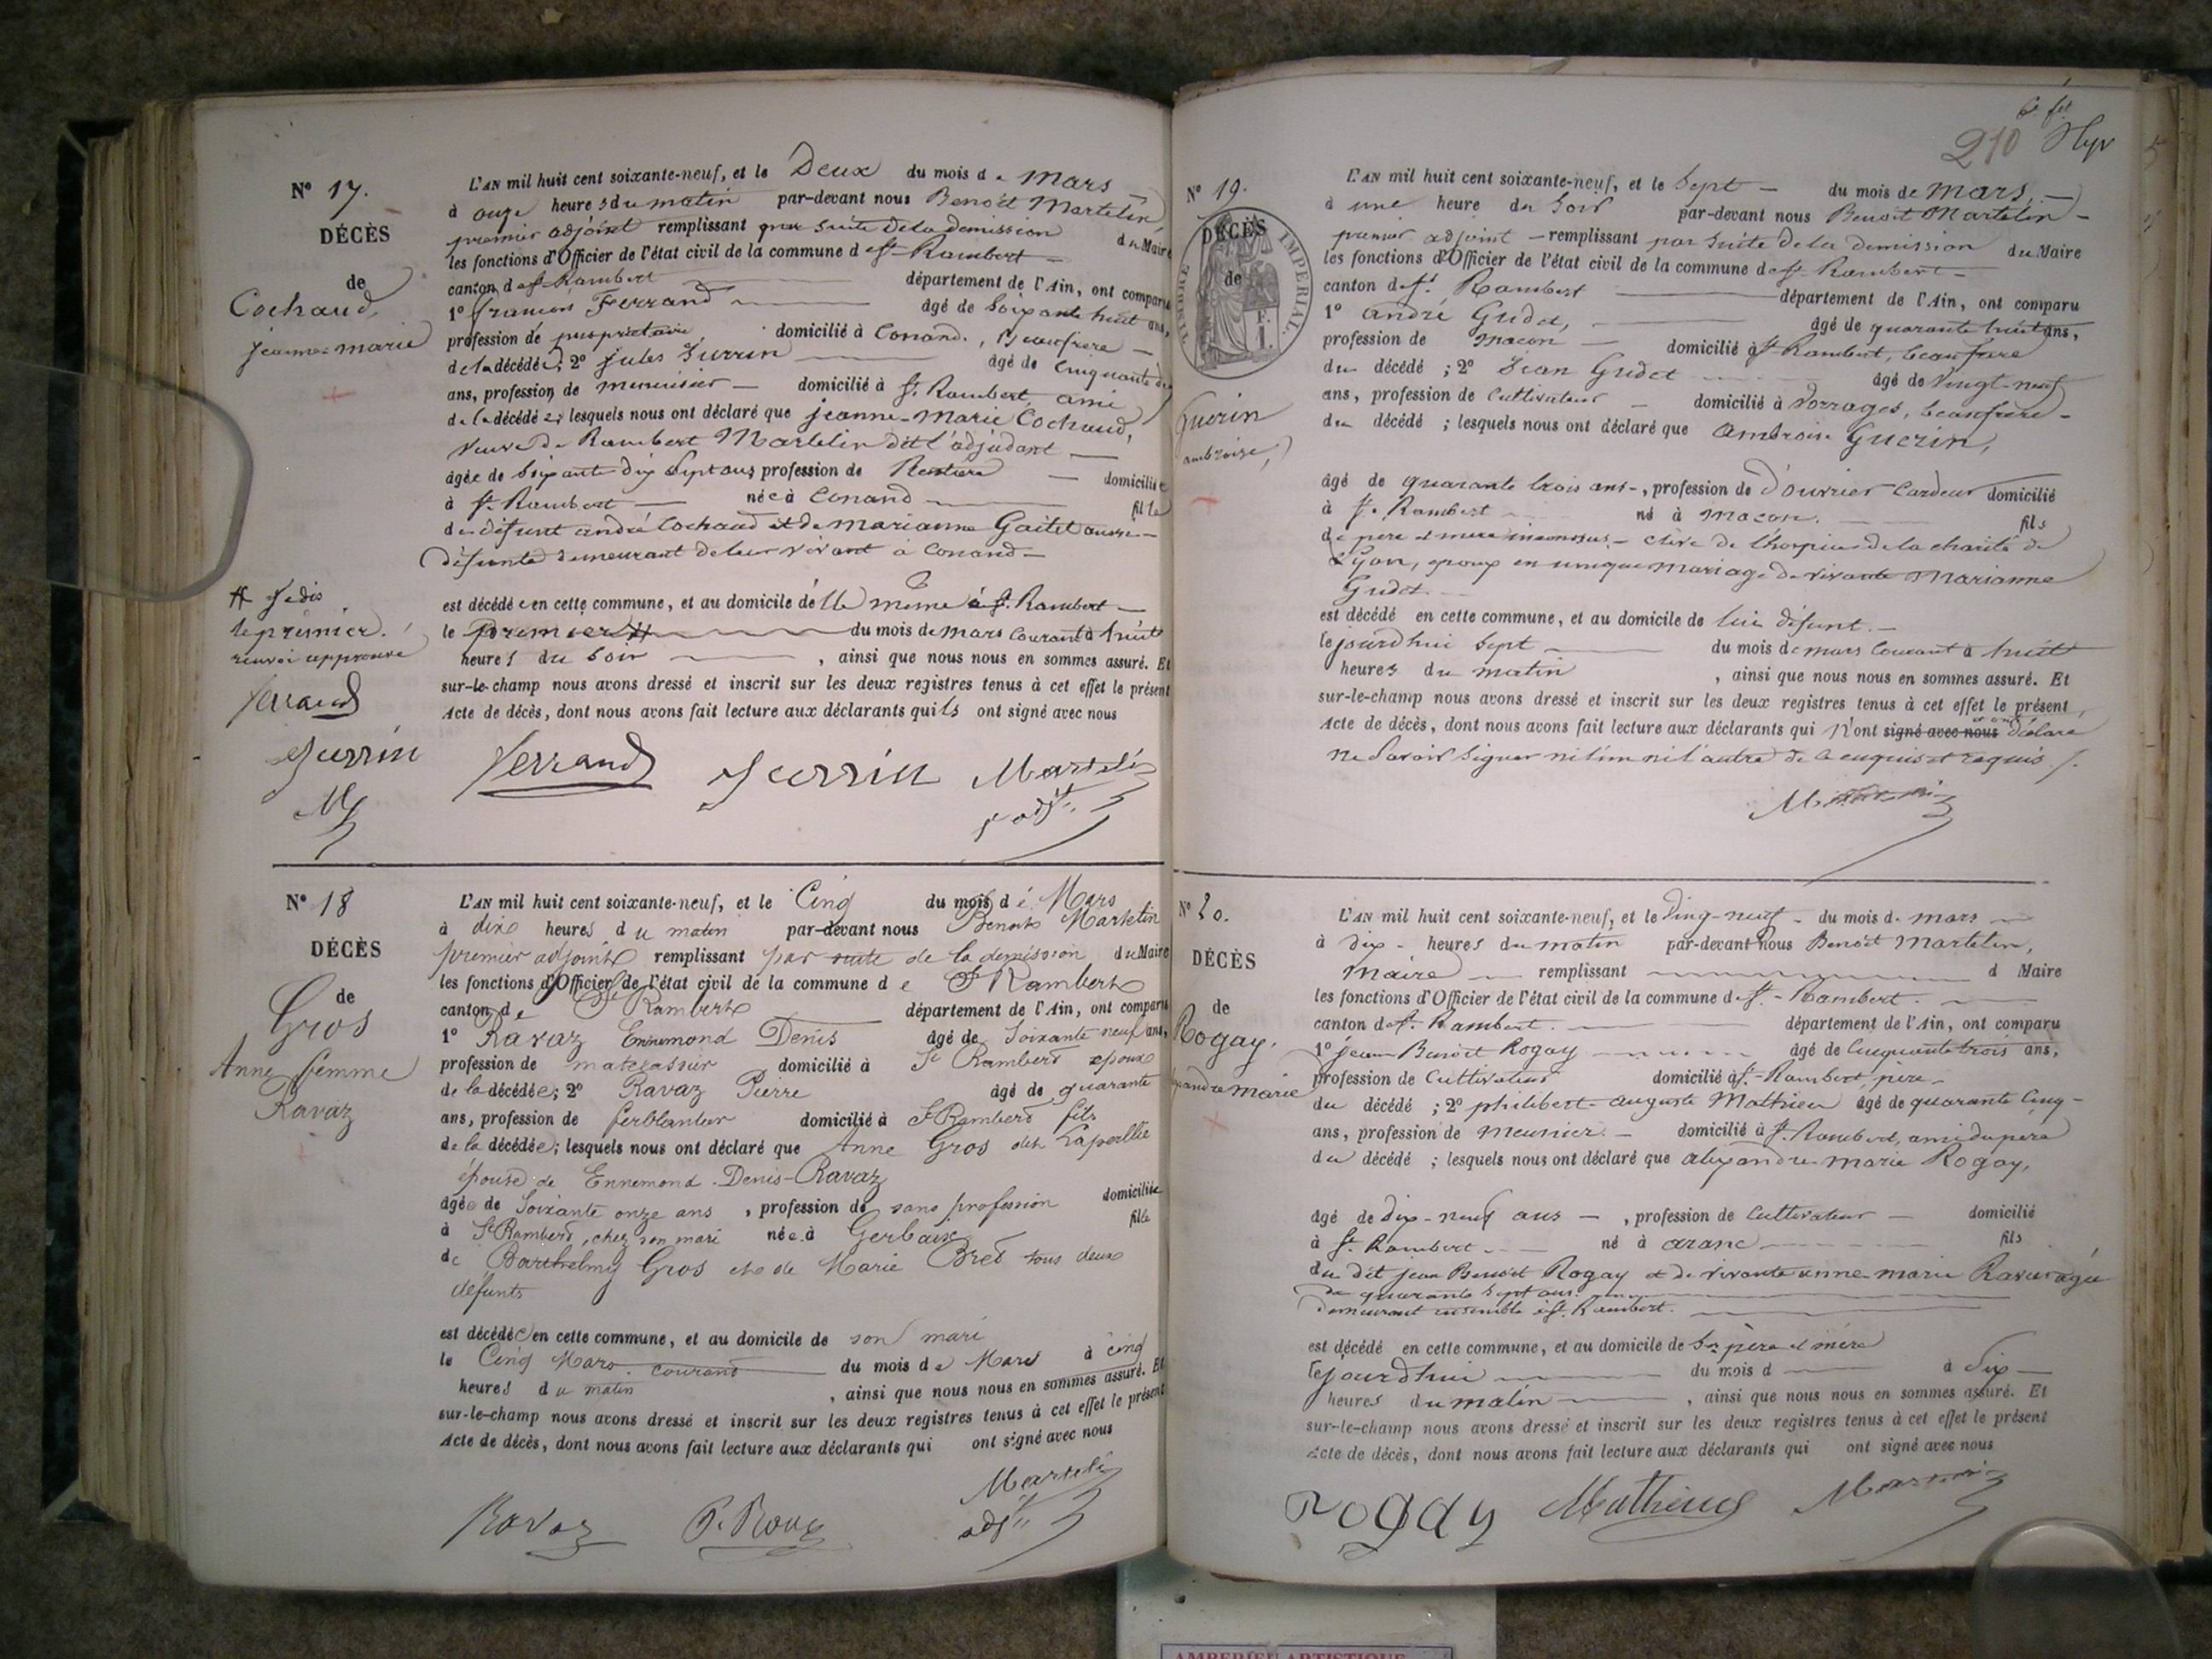 N° 17.
DÉCÈS
de
Cochaud,
jeanne-marie
L'AN mil huit cent soixante-neuf, et le Deux du mois de Mars
à onze heures du matin par-devant nous Benoît Martelin
premier adjoint remplissant par suite de la demission du Maire
les fonctions d'Officier de l'état civil de la commune de St Rambert
canton de St Rambert département de l'Ain, ont comparu
1° françois Ferrand âgé de Soixante huit ans,
profession de propriétaire, domicilié à Conand, Beaufrere
de la décédée; 2° jules Surrin âgé de Cinquante
ans, profession de menuisier domicilié à St. Rambert, ami
de la décédée; lesquels nous ont déclaré que jeanne-Marie Cochaud,
veuve de Rambert Martelin dit l'adjudant
âgée de Soixante dix Sept ans, profession de Rentière domiciliée
à St. Rambert née à Conand fille
de défunt andré Cochaud et de marianne Gaitet aussi
défunte demeurant de leur vivant à Conand
est décédée en cette commune, et au domicile d'elle même à St. Rambert
le Premier # du mois de mars Courant à huit
heures du Soir, ainsi que nous nous en sommes assuré. Et
sur-le-champ nous avons dressé et inscrit sur les deux registres tenus à cet effet le présent
Acte de décès, dont nous avons fait lecture aux déclarants qui ls ont signé avec nous
# je dis
le premier.
renvoi approuvé
Ferrand
Surrin
M
Ferrand Surrin Martelin
1er adjt.
N° 18
DÉCÈS
de
Gros
Anne femme
Ravaz
L'AN mil huit cent soixante-neuf, et le Cinq du mois de Mars
à dix heures du matin par-devant nous Benoit Martelin
premier adjoint remplissant par suite de la démission du Maire
les fonctions d'Officier de l'état civil de la commune de St Rambert
canton de St Rambert département de l'Ain, ont comparu
1° Ravaz Ennemond Denis âgé de Soixante neuf ans,
profession de matelassier domicilié à St Rambert époux
de la décédée; 2° Ravaz Pierre âgé de quarante
ans, profession de ferblantier domicilié à St Rambert fils
de la décédée; lesquels nous ont déclaré que Anne Gros dite Lapeollie
épouse de Ennemond Denis-Ravaz
âgée de Soixante onze ans, profession de sans profession domiciliée
à St Rambert, chez son mari née à Gerbaix fille
de Barthelmy Gros et de Marie Bret tous deux
défunts
est décédée en cette commune, et au domicile de son mari
le Cinq Mars courant du mois de Mars à cinq
heures du matin, ainsi que nous nous en sommes assuré. Et
sur-le-champ nous avons dressé et inscrit sur les deux registres tenus à cet effet le présent
Acte de décès, dont nous avons fait lecture aux déclarants qui ont signé avec nous
Ravaz Martelin
adjt
210
N° 19.
DÉCÈS
de
TIMBRE IMPÉRIAL.
Guérin
ambroise,
L'AN mil huit cent soixante-neuf, et le Sept du mois de mars,
à une heure du Soir par-devant nous Benoît Martelin
premier adjoint remplissant par suite de la demission du Maire
les fonctions d'Officier de l'état civil de la commune de St. Rambert
canton de St. Rambert département de l'Ain, ont comparu
1° andré Gudet, âgé de quarante huit ans,
profession de maçon domicilié à St Rambert, beaufrere
du décédé; 2° Jean Gudet âgé de Vingt-neuf
ans, profession de Cultivateur domicilié à Dorrages, beaufrère
du décédé; lesquels nous ont déclaré que ambroise Guerin,
âgé de quarante trois ans, profession de d'ouvrier Cardeur domicilié
à St. Rambert né à macon. fils
de pere et mere inconnus - élève de l'hospice de la charité de
Lyon, époux en unique mariage de vivante Marianne
Gudet.
est décédé en cette commune, et au domicile de lui défunt.
lejourd'hui Sept du mois de mars Courant à huit
heures du matin, ainsi que nous nous en sommes assuré. Et
sur-le-champ nous avons dressé et inscrit sur les deux registres tenus à cet effet le présent
Acte de décès, dont nous avons fait lecture aux déclarants qui n'ont signé avec nous et ont déclaré
ne Savoir Signer ni l'un ni l'autre de ce enquis et requis /.
Martelin
N° 20.
DÉCÈS
de
Rogay.
marie
L'AN mil huit cent soixante-neuf, et le Ving-neuf du mois de mars
à dix heures du matin par-devant nous Benoit Martelin,
maire remplissant d Maire
les fonctions d'Officier de l'état civil de la commune de St. Rambert.
canton de St. Rambert. département de l'Ain, ont comparu
1° jean Benoit Rogay âgé de Cinquante trois ans,
profession de Cultivateur domicilié à St. Rambert, père
du décédé; 2° philibert auguste Mathieu âgé de quarante Cinq
ans, profession de meunier. domicilié à St. Rambert, ami du pere
du décédé; lesquels nous ont déclaré que alexandre marie Rogay,
âgé de dix-neuf ans, profession de Cultivateur domicilié
à St. Rambert né à aranc fils
du dit jean Benoît Rogay et de vivante anne-marie Ravar agée
de quarante sept ans.
demeurant ensemble à St. Rambert.
est décédé en cette commune, et au domicile de Ses père et mère
lejourd'hui du mois d à Six
heures du matin, ainsi que nous nous en sommes assuré. Et
sur-le-champ nous avons dressé et inscrit sur les deux registres tenus à cet effet le présent
Acte de décès, dont nous avons fait lecture aux déclarants qui ont signé avec nous
rogay Mathieu Martelin
AMBERIEU ARTISTIQUE